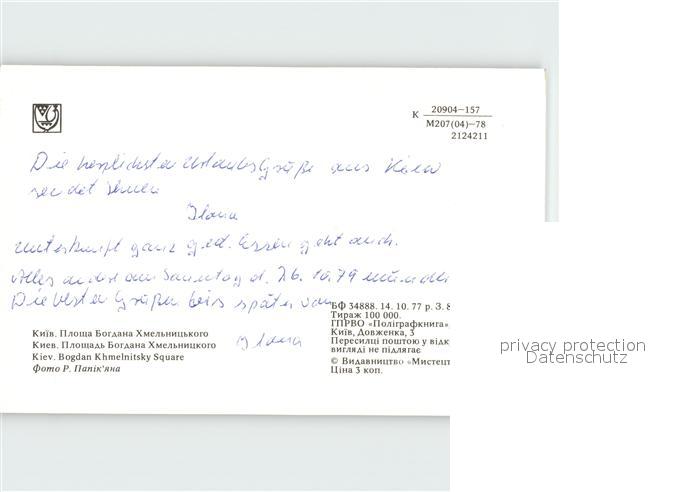 К 20904—157
М207(04)—78
2124211
Die herzlichsten Urlaubsgrüße aus Kiew
sendet Ihnen
Ilona
Unterkunft ganz gut. Essen geht auch.
Alles andre am Sonntag d.
Die besten Grüße bis später von
Ilona
БФ 34888. 14. 10. 77 р. З. 8
Тираж 100 000.
ГПРВО «Поліграфкнига»
Київ, Довженка, 3
Пересилці поштою у відк
вигляді не підлягає
© Видавництво «Мистецт
Ціна 3 коп.
Київ. Площа Богдана Хмельницького
Киев. Площадь Богдана Хмельницкого
Kiev. Bogdan Khmelnitsky Square
Фото Р. Папік'яна
privacy protection
Datenschutz